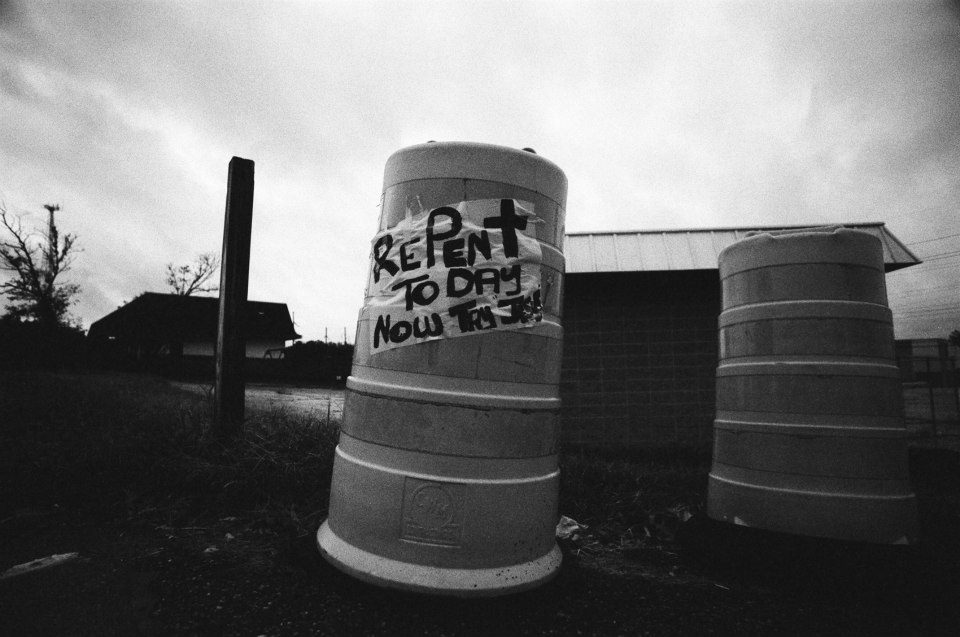 RePENt
TO DAY
NOW TRY JESUS